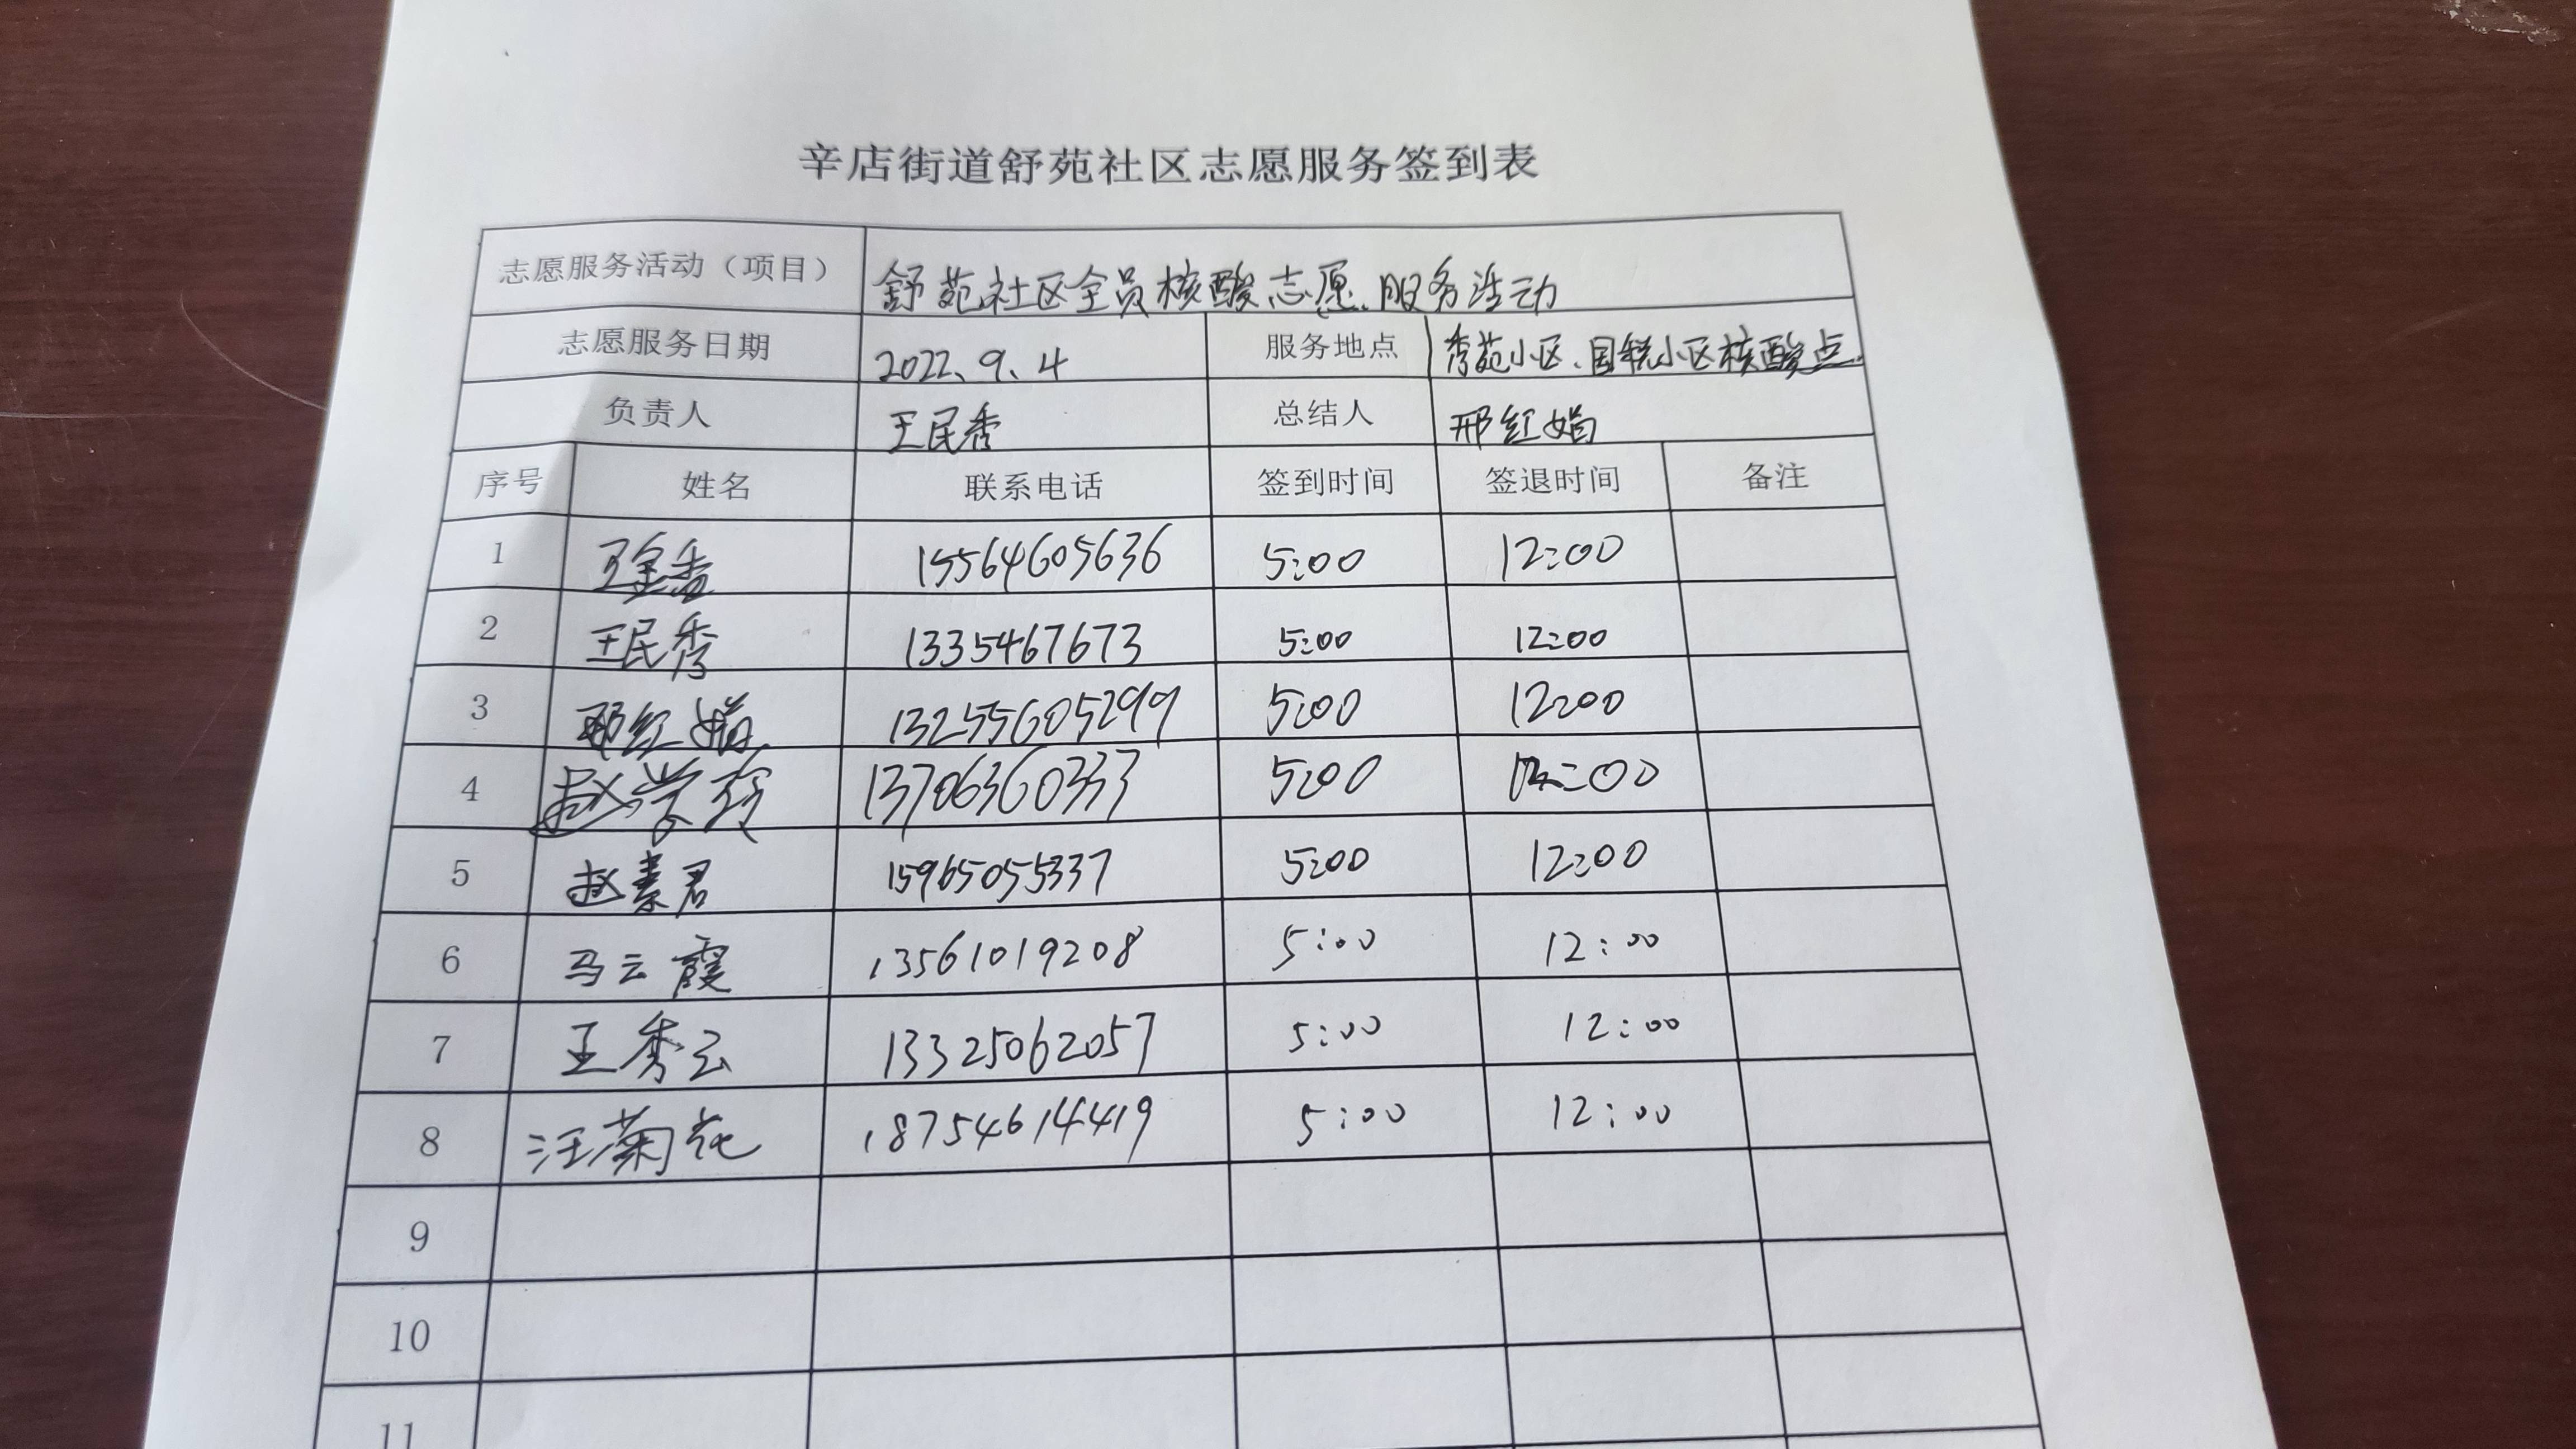 辛店街道舒苑社区志愿服务签到表
志愿服务活动（项目） 舒苑社区全员核酸志愿服务活动
志愿服务日期 2022、9、4 服务地点 秀苑小区、国税小区核酸点
负责人 王民秀 总结人 邢红娟
序号 姓名 联系电话 签到时间 签退时间 备注
1 王金香 15564605636 5:00 12:00
2 王民秀 1335467673 5:00 12:00
3 邢红娟 13255605299 5:00 12:00
4 赵学玲 13706360333 5:00 12:00
5 赵素君 15965055337 5:00 12:00
6 马云霞 13561019208 5:00 12:00
7 王秀云 13325062057 5:00 12:00
8 汪菊花 18754614419 5:00 12:00
9
10
11